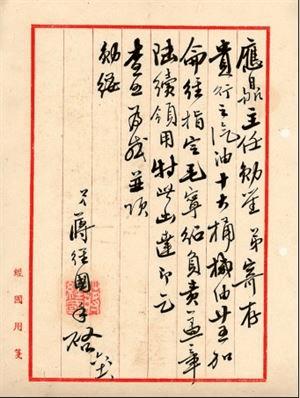 應鼎主任勛鑒 弟寄存
貴行之汽油十大桶機油廿五加
侖經指定毛寧紹負責蓋章
陸續領用特此函達即乞
查照為感並頌
勛綏
弟蔣經國手啓
經國用箋